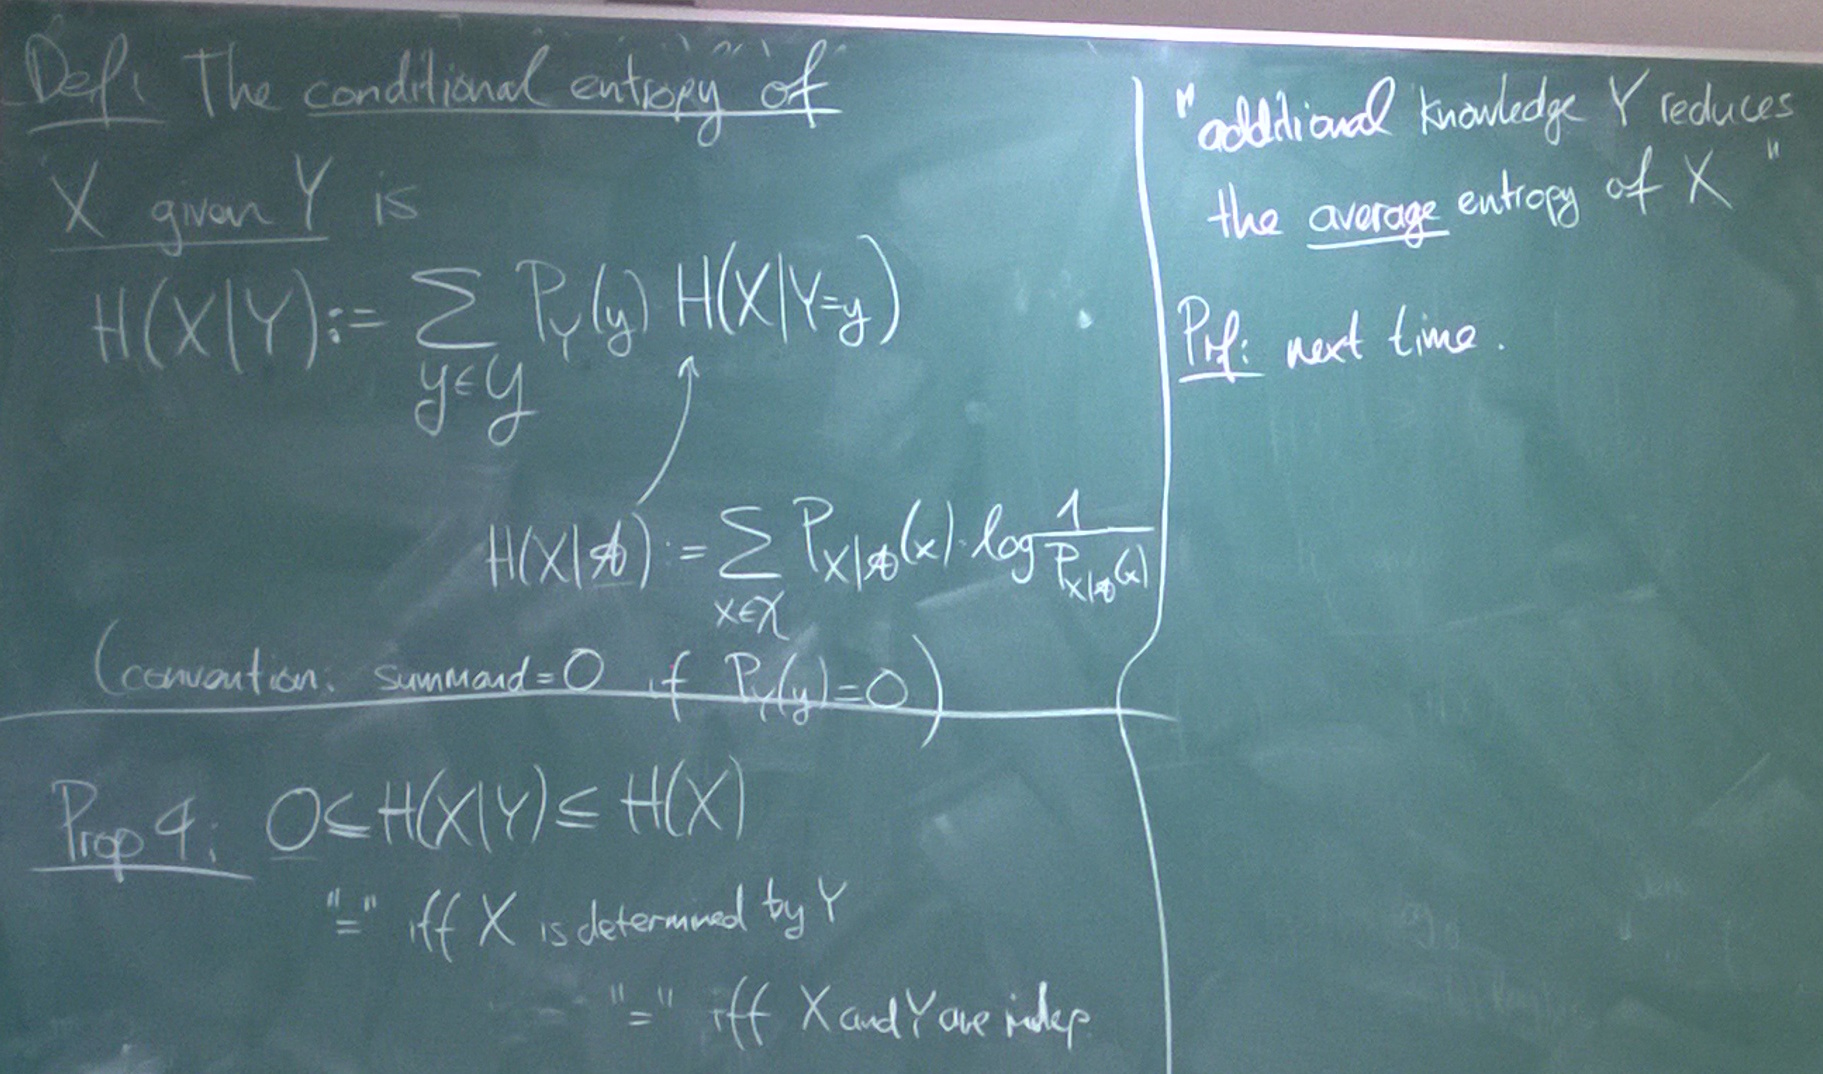 Def: The conditional entropy of
X given Y is
H(X|Y) := ∑ P_Y(y) · H(X|Y=y)
y∈𝒴
H(X|𝒜) := ∑ P_{X|𝒜}(x) · log 1/P_{X|𝒜}(x)
x∈𝒳
(convention: summand = 0 if P_Y(y) = 0)
Prop 4: 0 ≤ H(X|Y) ≤ H(X)
"=" iff X is determined by Y
"=" iff X and Y are indep.
"additional knowledge Y reduces
the average entropy of X"
Prf: next time.